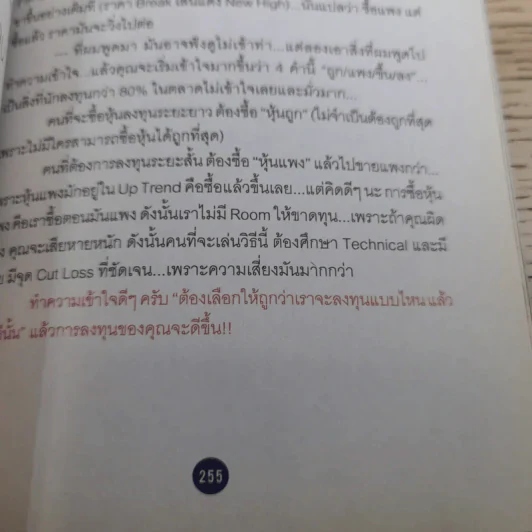 ขาขึ้นอย่างเต็มที่ (ราคา Break เส้นแดง New High)...นั่นแปลว่า ซื้อแพง แต่
ซื้อแล้ว ราคามันจะวิ่งไปต่อ
.... ที่ผมพูดมา มันอาจฟังดูไม่เข้าท่า...แต่ลองเอาสิ่งที่ผมพูดไป
ทำความเข้าใจ...แล้วคุณจะเริ่มเข้าใจมากขึ้นว่า 4 คำนี้ "ถูก/แพง/ขึ้น/ลง"...
เป็นสิ่งที่นักลงทุนกว่า 80% ในตลาดไม่เข้าใจเลยและมั่วมาก...
คนที่จะซื้อหุ้นลงทุนระยะยาว ต้องซื้อ "หุ้นถูก" (ไม่จำเป็นต้องถูกที่สุด
เพราะไม่มีใครสามารถซื้อหุ้นได้ถูกที่สุด)
คนที่ต้องการลงทุนระยะสั้น ต้องซื้อ "หุ้นแพง" แล้วไปขายแพงกว่า...
ราะหุ้นแพงมักอยู่ใน Up Trend คือซื้อแล้วขึ้นเลย...แต่คิดดีๆ นะ การซื้อหุ้น
พง คือเราซื้อตอนมันแพง ดังนั้นเราไม่มี Room ให้ขาดทุน...เพราะถ้าคุณผิด
ง คุณจะเสียหายหนัก ดังนั้นคนที่จะเล่นวิธีนี้ ต้องศึกษา Technical และมี
มีจุด Cut Loss ที่ชัดเจน...เพราะความเสี่ยงมันมากกว่า
ทำความเข้าใจดีๆ ครับ "ต้องเลือกให้ถูกว่าเราจะลงทุนแบบไหน แล้ว
นั้น" แล้วการลงทุนของคุณจะดีขึ้น!!
255